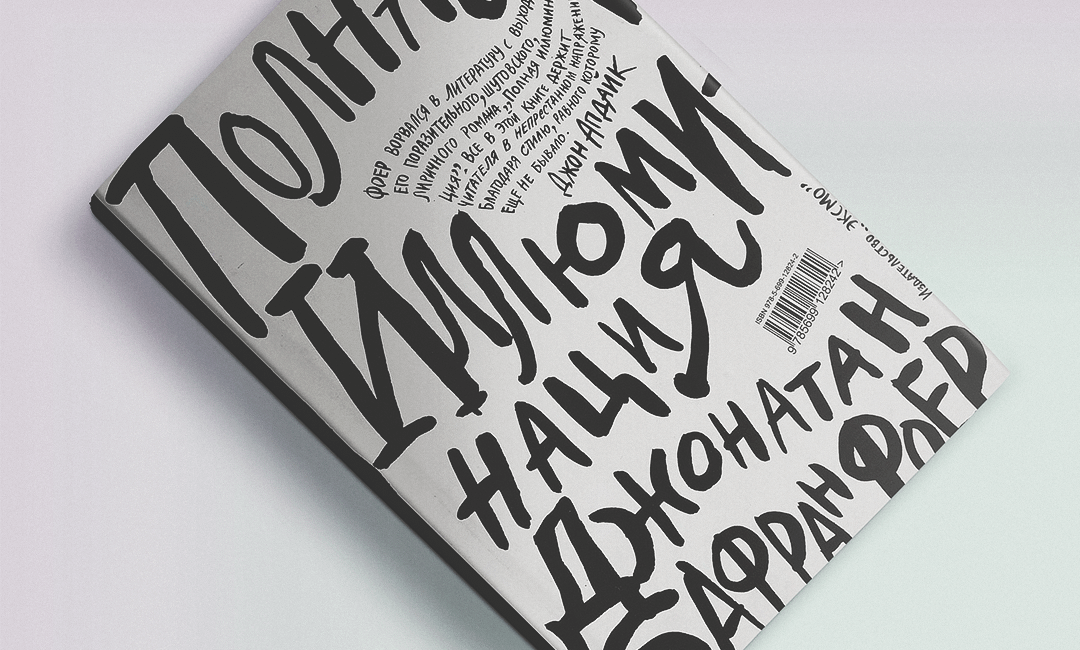 ПОЛН
ФОЕР ВОРВАЛСЯ В ЛИТЕРАТУРУ С ВЫХОД
ЕГО ПОРАЗИТЕЛЬНОГО, ШУТОВСКОГО,
ЛИРИЧНОГО РОМАНА „ПОЛНАЯ ИЛЛЮМИН
ЦИЯ”. ВСЕ В ЭТОЙ КНИГЕ ДЕРЖИТ
ЧИТАТЕЛЯ В НЕПРЕСТАННОМ НАПРЯЖЕНИ
БЛАГОДАРЯ СТИЛЮ, РАВНОГО КОТОРОМУ
ЕЩЕ НЕ БЫВАЛО.
ДЖОН АПДАЙК
ИЛЛЮМИ
НАЦИЯ
ИЗДАТЕЛЬСТВО „ЭКСМО”
ISBN 978-5-699-12824-2
9 785699 128242 >
ДЖОНАТАН
САФРАН ФОЕР